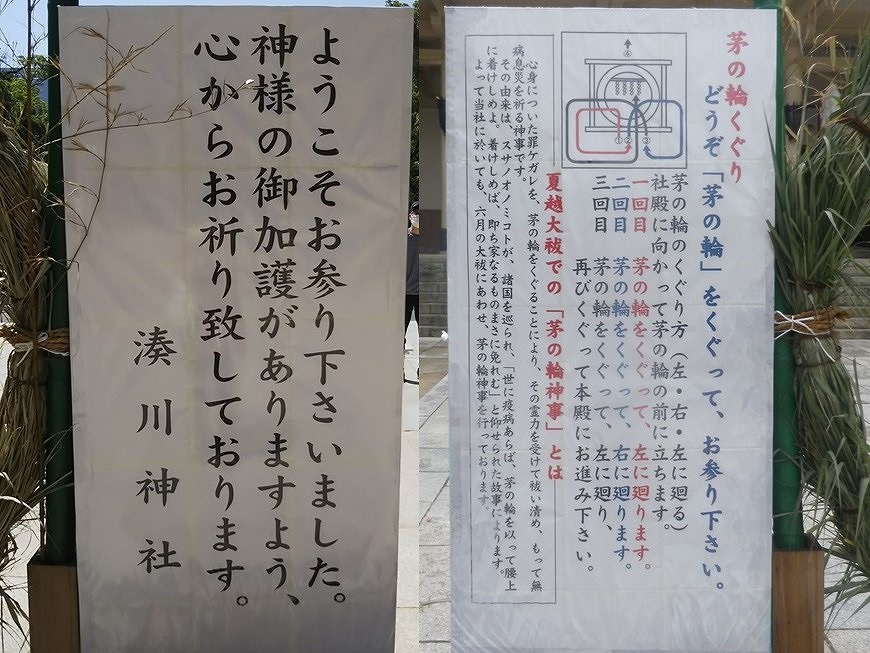 ようこそお参り下さいました。
神様の御加護がありますよう、
心からお祈り致しております。
湊川神社
茅の輪くぐり
どうぞ「茅の輪」をくぐって、お参り下さい。
茅の輪のくぐり方（左・右・左に廻る）
社殿に向かって茅の輪の前に立ちます。
一回目　茅の輪をくぐって、左に廻ります。
二回目　茅の輪をくぐって、右に廻ります。
三回目　茅の輪をくぐって、左に廻り、
再びくぐって本殿にお進み下さい。
④
① ② ③
夏越大祓での「茅の輪神事」とは
心身についた罪ケガレを、茅の輪をくぐることにより、その霊力を受けて祓い清め、もって無
病息災を祈る神事です。
その由来は、スサノオノミコトが、諸国を巡られ、「世に疫病あらば、茅の輪を以って腰上
に着けしめよ。着けしめば、即ち家なるものまさに免れむ」と仰せられた故事によります。
よって当社に於いても、六月の大祓にあわせ、茅の輪神事を行っております。